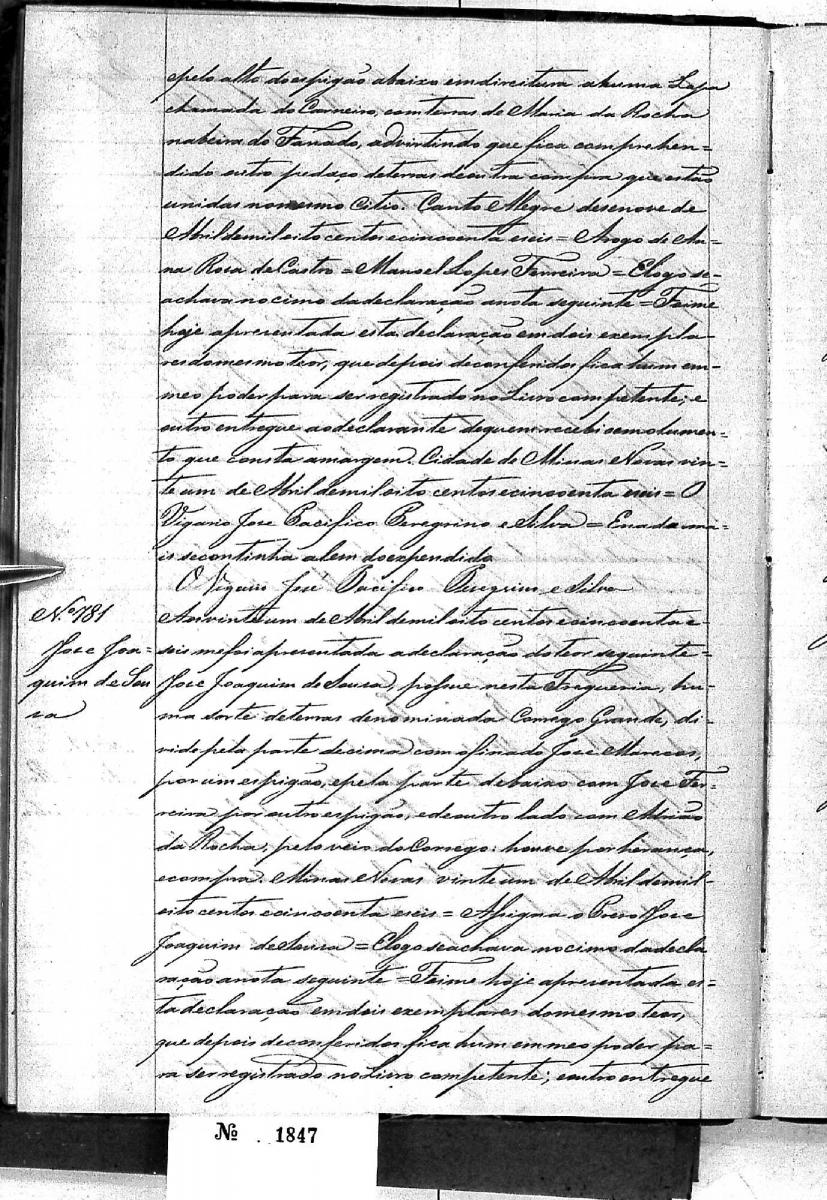 epelo alto do espigão abaixo em direitura a huma Lapa
chamada do Carneiro, com terras de Maria da Rocha
na beira do Fanado, advirtindo que fica comprehen-
dido outro pedaço de terras de outra compra que estão
unidas no mesmo Citio. Canto Alegre desenove de
Abril de mil eito centos ecincoenta eseis = Arogo de An-
na Rosa de Castro = Manoel Lopes Ferreira = Elogo se-
achava no cimo da declaração a nota seguinte = Foime
hoje apresentada esta declaração em dois exempla-
res do mesmo teor, que depois de conferidos fica hum em-
meo poder para ser registrado no Livro competente; e
outro entregue ao declarante de quem recebi o emolumen-
to que consta amargem. Cidade de Minas Novas vin-
te um de Abril de mil eito centos ecincoenta eseis = O
Vigario José Pacifico Peregrino e Silva = Enada ma-
is se continha alem do expendido
O Vigario José Pacifico Peregrino e Silva
Nº 781
Jose Joa-
quim de Sou
za
Aos vinte um de Abril de mil eito centos ecincoenta e-
seis me foi apresentada a declaração do teor seguinte =
José Joaquim de Souza, posue nesta Freguezia, hu-
ma sorte de terras denominada Corrego Grande, di-
vide pela parte de cima com o finado José Marcos,
por um espigão, epela parte debaixo com José Fer-
reira por outro espigão, ede outro lado com
da Rocha, pelo veio do Corrego: houve por herança,
ecompra. Minas Novas vinte um de Abril de mil-
eito centos ecincoenta eseis = Asigna o José
Joaquim de Souza = Elogo se achava no cimo da decla
ração a nota seguinte = Foime hoje apresentada es-
ta declaração em dois exemplares do mesmo teor,
que depois de conferidos fica hum em meo poder pa-
ra ser registrado no Livro competente; eoutro entregue
Nº 1847